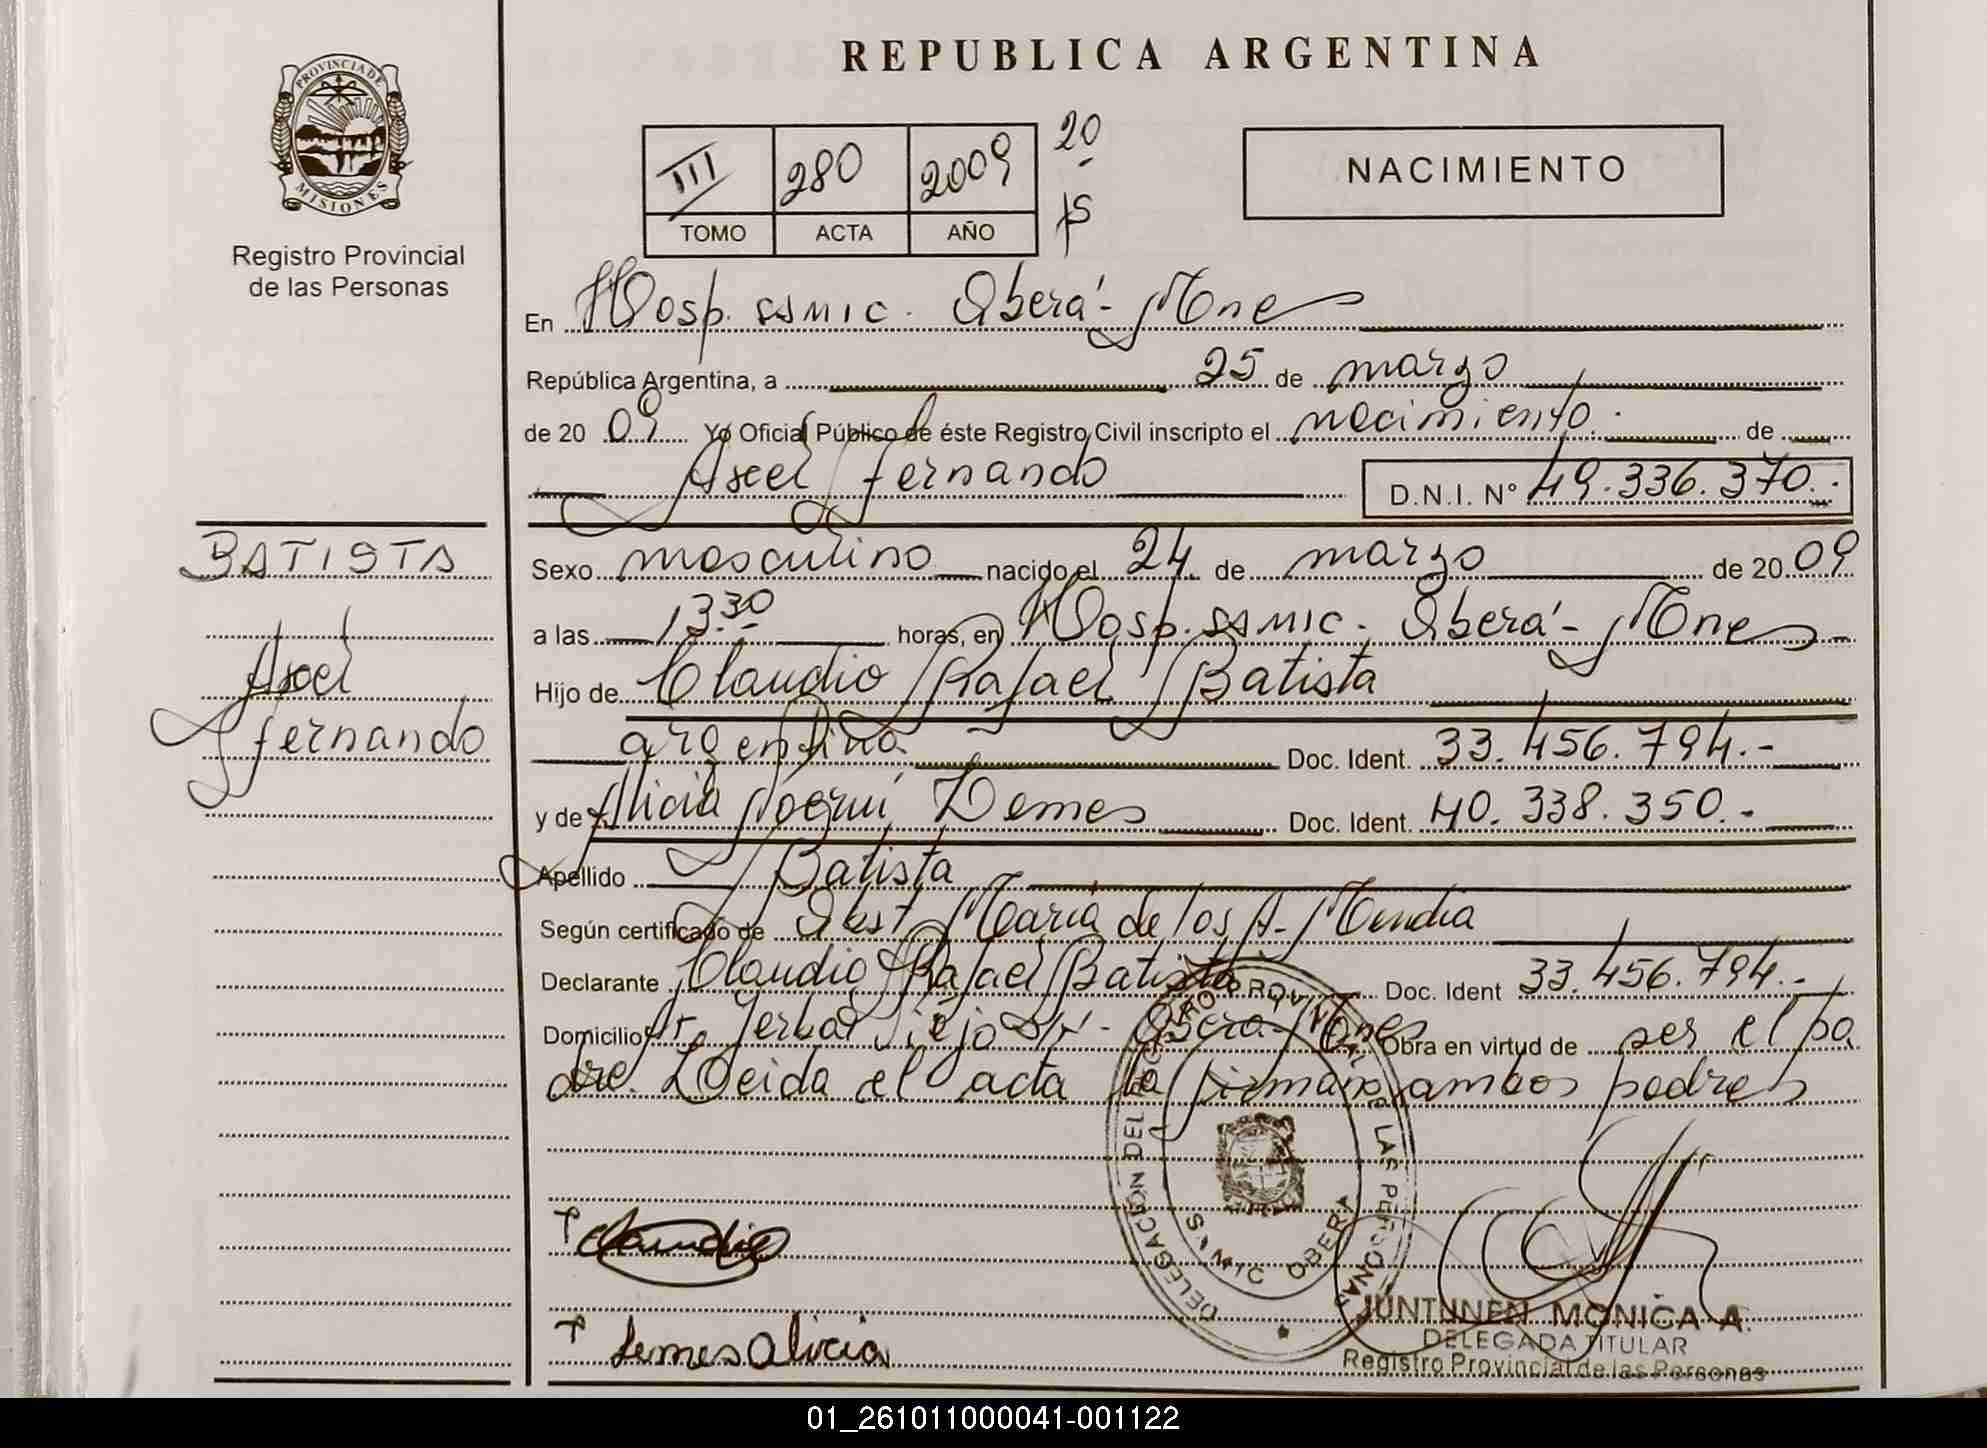 REPUBLICA ARGENTINA
PROVINCIA DE MISIONES
Registro Provincial
de las Personas
III 280 2009 20
TOMO ACTA AÑO 15
NACIMIENTO
En Hosp. SSMIC. Oberá - Mnes
República Argentina, a 25 de marzo
de 2009 Yo Oficial Público de éste Registro Civil inscripto el nacimiento. de
Axel Fernando D.N.I. Nº 49.336.370.-
BATISTA
Axel
Fernando
Sexo masculino nacido el 24 de marzo de 2009
a las 13.30 horas, en Hosp. SSMIC. Oberá - Mnes
Hijo de Claudio Rafael Batista
argentina Doc. Ident. 33.456.794.-
y de Alicia Noemí Lemes Doc. Ident. 40.338.350.-
Apellido Batista
Según certificado de Obst. María de los A. Mendia
Declarante Claudio Rafael Batista Doc. Ident 33.456.794.-
Domicilio Yerbal Viejo Oberá - Mnes Obra en virtud de ser el pa
dre. Leida el acta la firman ambos padres
Claudio
Lemes Alicia
DELEGACIÓN DEL REGISTRO PROVINCIAL DE LAS PERSONAS
SAMIC OBERA
JUNTUNEN MONICA A.
DELEGADA TITULAR
Registro Provincial de las Personas
01_261011000041-001122